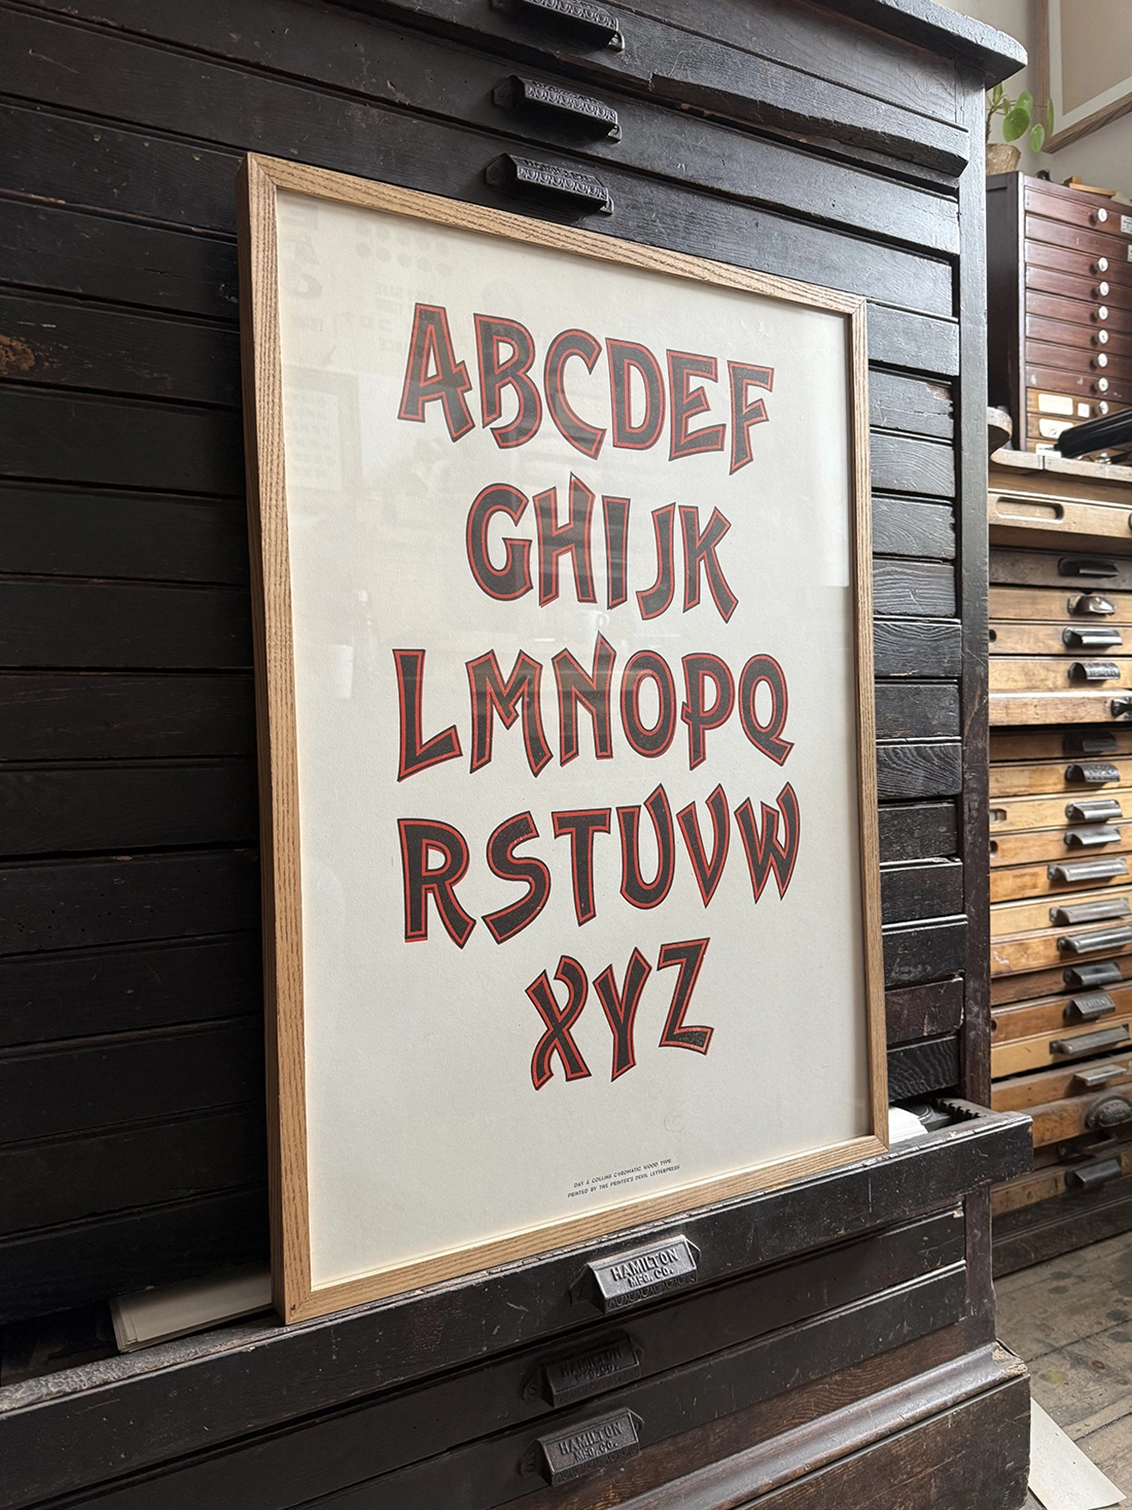 ABCDEF
GHIJK
LMNOPQ
RSTUVW
XYZ
DAY & COLLINS CHROMATIC WOOD TYPE
PRINTED BY THE PRINTER'S DEVIL LETTERPRESS
HAMILTON
MFG. CO.
HAMILTON
MFG. CO.
HAMILTON
MFG. CO.